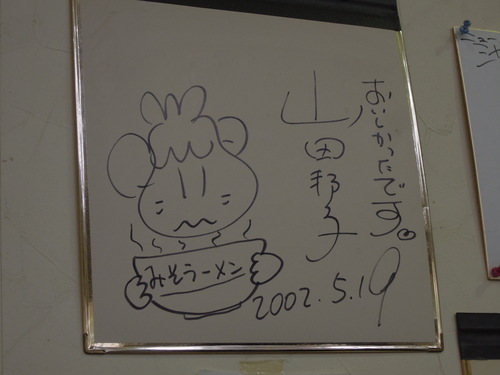 おいしかったです。
山田邦子
みそラーメン
2002.5.19